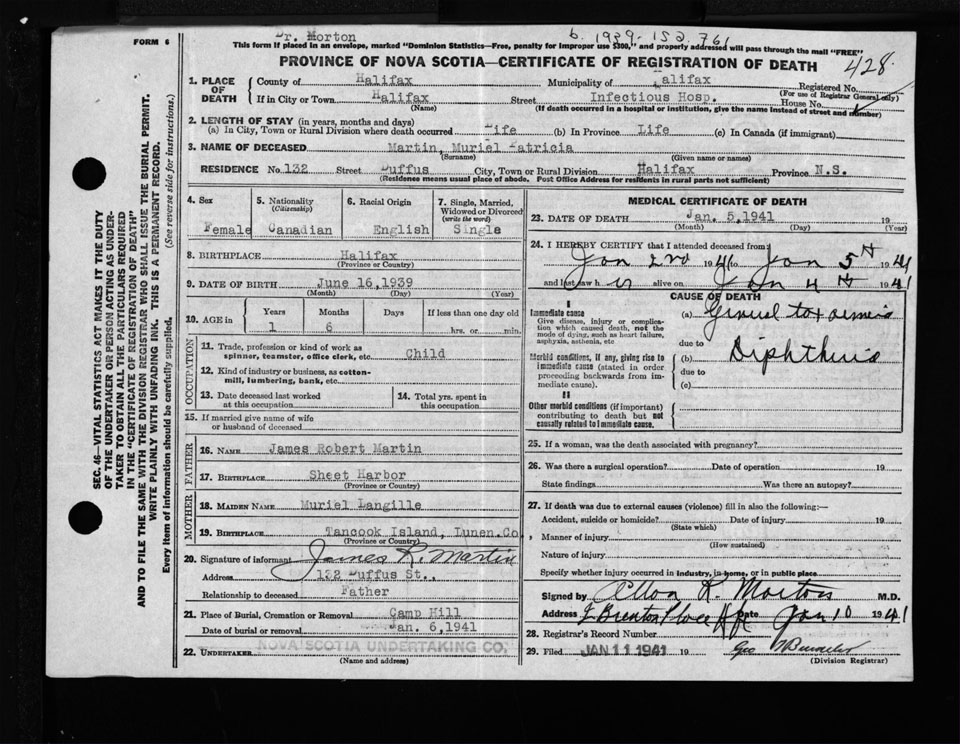 Dr. Morton
b. 1939-152.761
FORM 6
This form if placed in an envelope, marked "Dominion Statistics—Free, penalty for improper use $300," and properly addressed will pass through the mail "FREE"
PROVINCE OF NOVA SCOTIA—CERTIFICATE OF REGISTRATION OF DEATH
428
1. PLACE OF DEATH
County of Halifax Municipality of Halifax Registered No.
(For use of Registrar General only)
If in City or Town Halifax Street Infectious Hosp. House No.
(Name) (If death occurred in a hospital or institution, give the name instead of street and number)
2. LENGTH OF STAY (in years, months and days)
(a) In City, Town or Rural Division where death occurred Life (b) In Province Life (c) In Canada (if immigrant)
3. NAME OF DECEASED Martin, Muriel Patricia
(Surname) (Given name or names)
RESIDENCE No. 132 Street Duffus City, Town or Rural Division Halifax Province N.S.
(Residence means usual place of abode. Post Office Address for residents in rural parts not sufficient)
4. Sex
Female
5. Nationality
(Citizenship)
Canadian
6. Racial Origin
English
7. Single, Married, Widowed or Divorced
(write the word)
Single
8. BIRTHPLACE Halifax
(Province or Country)
9. DATE OF BIRTH June 16, 1939
(Month) (Day) (Year)
10. AGE in
Years Months Days If less than one day old
1 6 hrs. or min.
OCCUPATION
11. Trade, profession or kind of work as spinner, teamster, office clerk, etc. Child
12. Kind of industry or business, as cotton-mill, lumbering, bank, etc.
13. Date deceased last worked at this occupation
14. Total yrs. spent in this occupation
15. If married give name of wife or husband of deceased
FATHER
16. NAME James Robert Martin
17. BIRTHPLACE Sheet Harbor
(Province or Country)
MOTHER
18. MAIDEN NAME Muriel Langille
19. BIRTHPLACE Tancook Island, Lunen.Co.,
(Province or Country)
20. Signature of informant James R. Martin
Address 132 Duffus St.,
Relationship to deceased Father
21. Place of Burial, Cremation or Removal Camp Hill
Date of burial or removal Jan. 6, 1941
22. UNDERTAKER NOVA SCOTIA UNDERTAKING CO.
(Name and address)
MEDICAL CERTIFICATE OF DEATH
23. DATE OF DEATH Jan. 5, 1941 19
(Month) (Day) (Year)
24. I HEREBY CERTIFY that I attended deceased from:
Jan 2nd 1941 to Jan 5th 1941
and last saw her alive on Jan 4th 1941
CAUSE OF DEATH
I
Immediate cause
Give disease, injury or complication which caused death, not the mode of dying, such as heart failure, asphyxia, asthenia, etc
(a) General toxaemia
due to
Morbid conditions, if any, giving rise to immediate cause (stated in order proceeding backwards from immediate cause).
(b) Diphtheria
due to
(c)
II
Other morbid conditions (if important) contributing to death but not causally related to immediate cause.
25. If a woman, was the death associated with pregnancy?
26. Was there a surgical operation? Date of operation 19
State findings Was there an autopsy?
27. If death was due to external causes (violence) fill in also the following:—
Accident, suicide or homicide? Date of injury 19
(State which)
Manner of injury
(How sustained)
Nature of injury
Specify whether injury occurred in industry, in home, or in public place
Signed by Allan R. Morton M.D.
Address Brenton Place Hfx Date Jan 10 1941
28. Registrar's Record Number
29. Filed JAN 11 1941 19 Geo
(Division Registrar)
SEC. 46—VITAL STATISTICS ACT MAKES IT THE DUTY
OF THE UNDERTAKER OR PERSON ACTING AS UNDERTAKER TO OBTAIN ALL THE PARTICULARS REQUIRED
IN THE "CERTIFICATE OF REGISTRATION OF DEATH"
AND TO FILE THE SAME WITH THE DIVISION REGISTRAR WHO SHALL ISSUE THE BURIAL PERMIT.
WRITE PLAINLY WITH UNFADING INK. THIS IS A PERMANENT RECORD.
Every item of information should be carefully supplied. (See reverse side for instructions.)